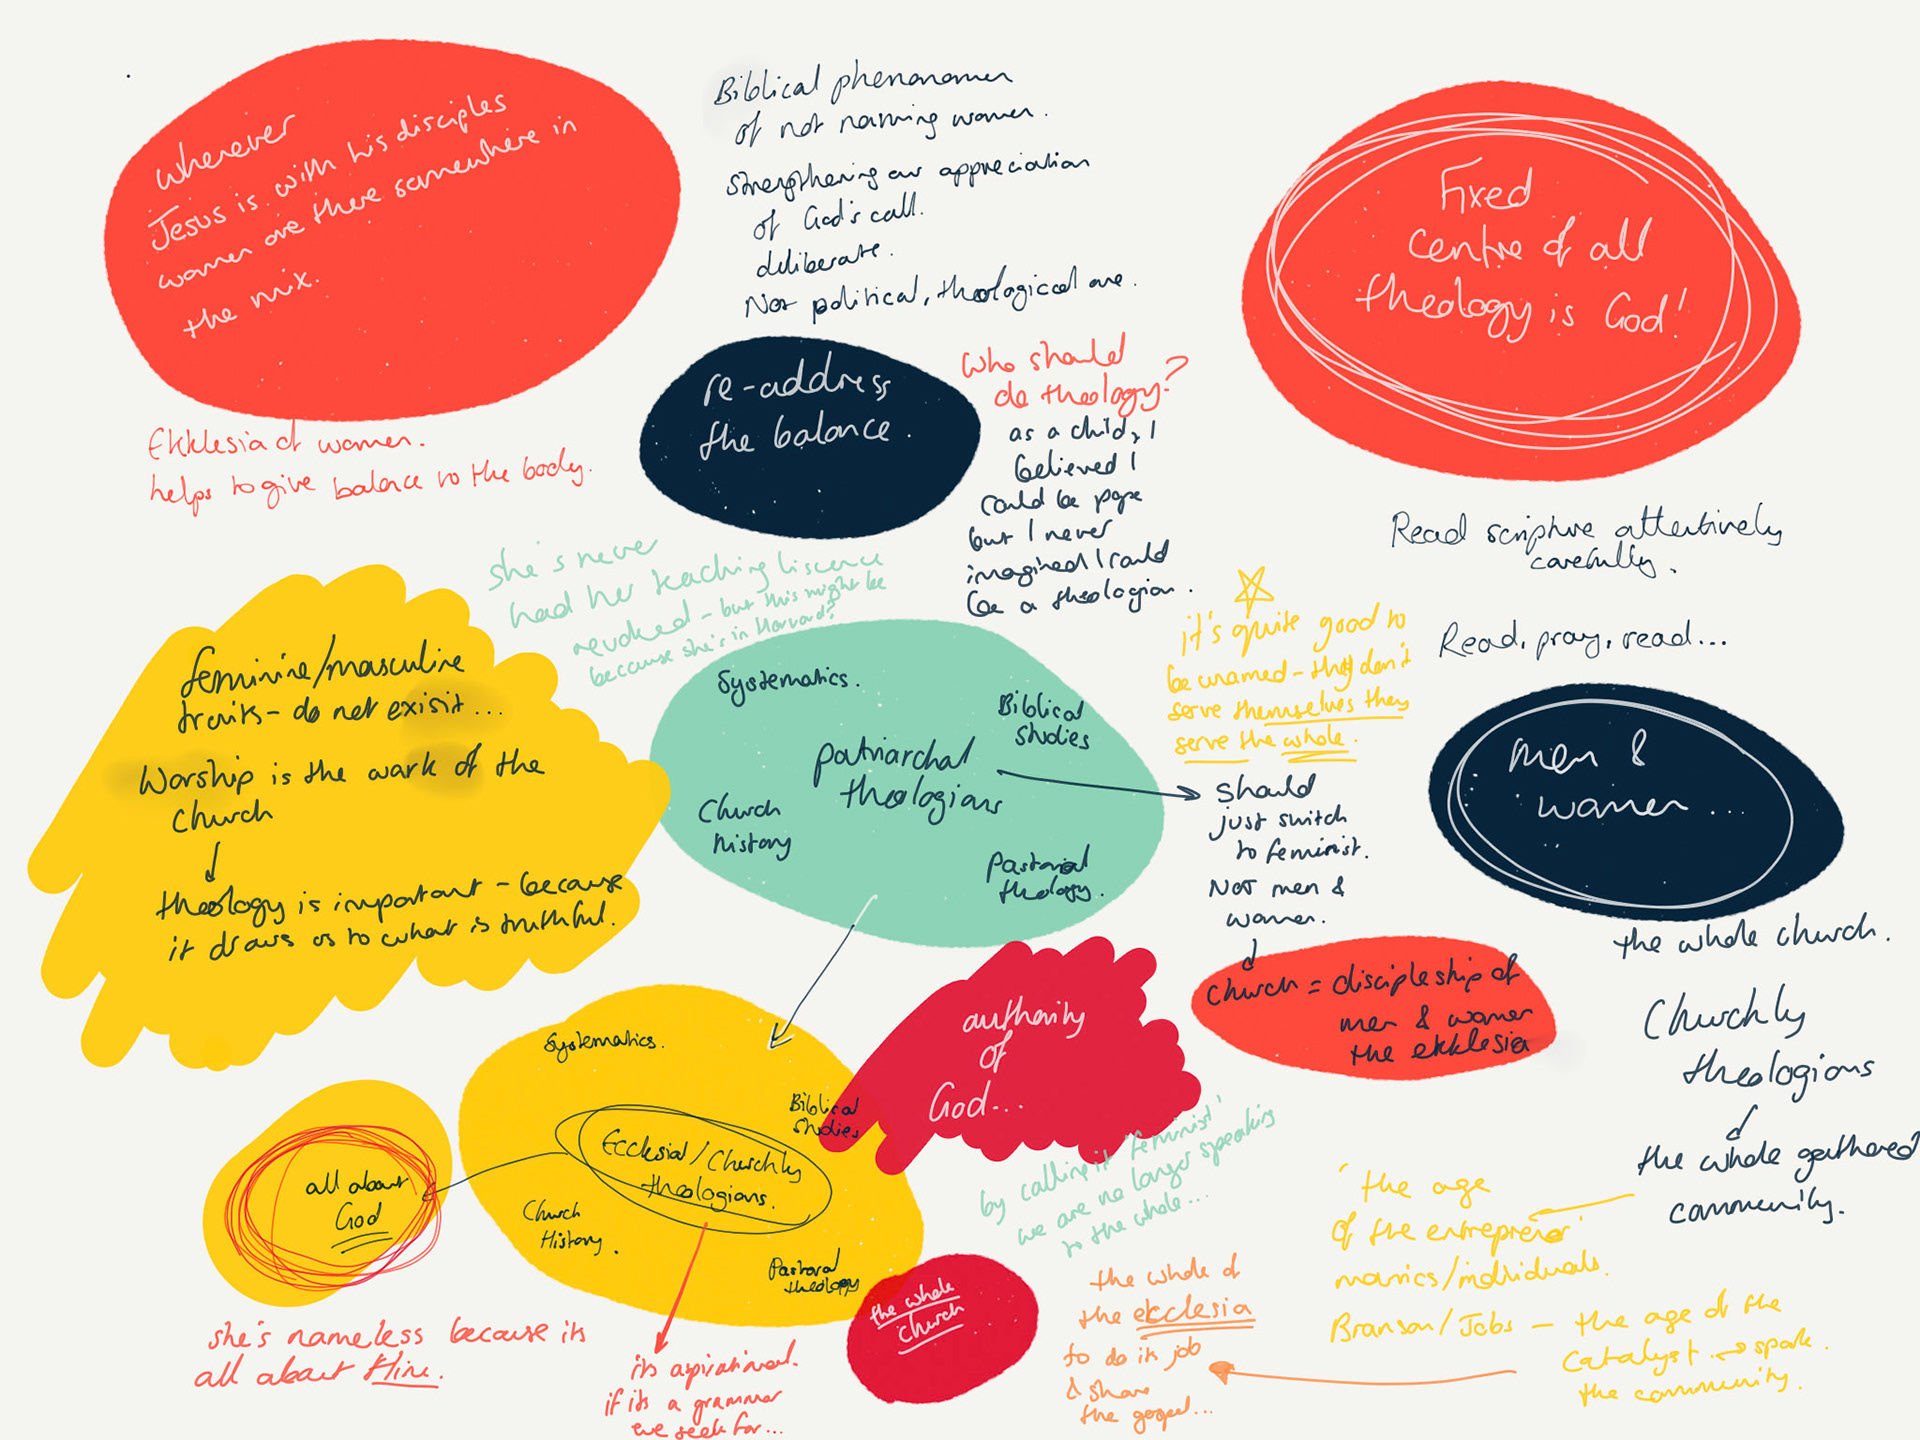 wherever
Jesus is with his disciples
women are there somewhere in
the mix.
Ekklesia of women.
helps to give balance to the body.
Biblical phenonomen
of not naming women.
strengthening our appreciation
of God's call.
deliberate.
Not political, theological one.
re-address
the balance.
who should
do theology?
as a child, I
believed I
could be pope
but I never
imagined I could
be a theologian.
Fixed
centre of all
theology is God!
Read scripture attentively
carefully.
Read, pray, read...
she's never
had her teaching liscence
revoked - but this might be
because she's in Harvard?
feminine/masculine
traits - do not exisit...
Worship is the work of the
church
theology is important - because
it draws us to what is truthful.
Systematics.
Biblical
studies
patriarchal
theologians
Church
history
Pastoral
theology.
it's quite good to
be unamed - they don't
serve themselves they
serve the whole.
should
just switch
to feminist.
Not men &
women.
Church = discipleship of
men & women
the ekklesia
men &
women...
the whole church.
Churchly
theologians
the whole gathered
community.
Systematics.
Biblical
studies
Ecclesial/Churchly
theologians.
Church
History.
Pastoral
theology
authority
of
God...
all about
God
she's nameless because its
all about Him.
its aspirational.
if its a grammar
we seek for...
the whole
church
by calling it 'feminist'
we are no longer speaking
to the whole...
the whole of
the ecclesia
to do its job
& share
the gospel...
'the age
of the entreprenor'
mavrics/individuals.
Branson/Jobs - the age of the
catalyst → spark.
the community.